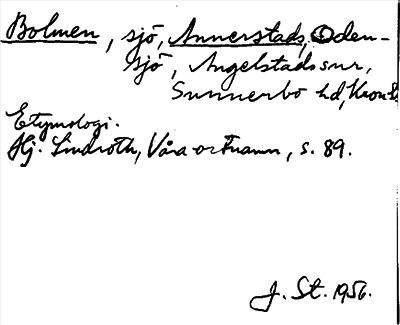 Bolmen, sjö, Annerstads, Oden-
sjö, Angelstads snr,
Sunnerbo hd, Kron. l.
Etymologi.
Hj. Lindroth, Våra ortnamn, s. 89.
J. St. 1956.